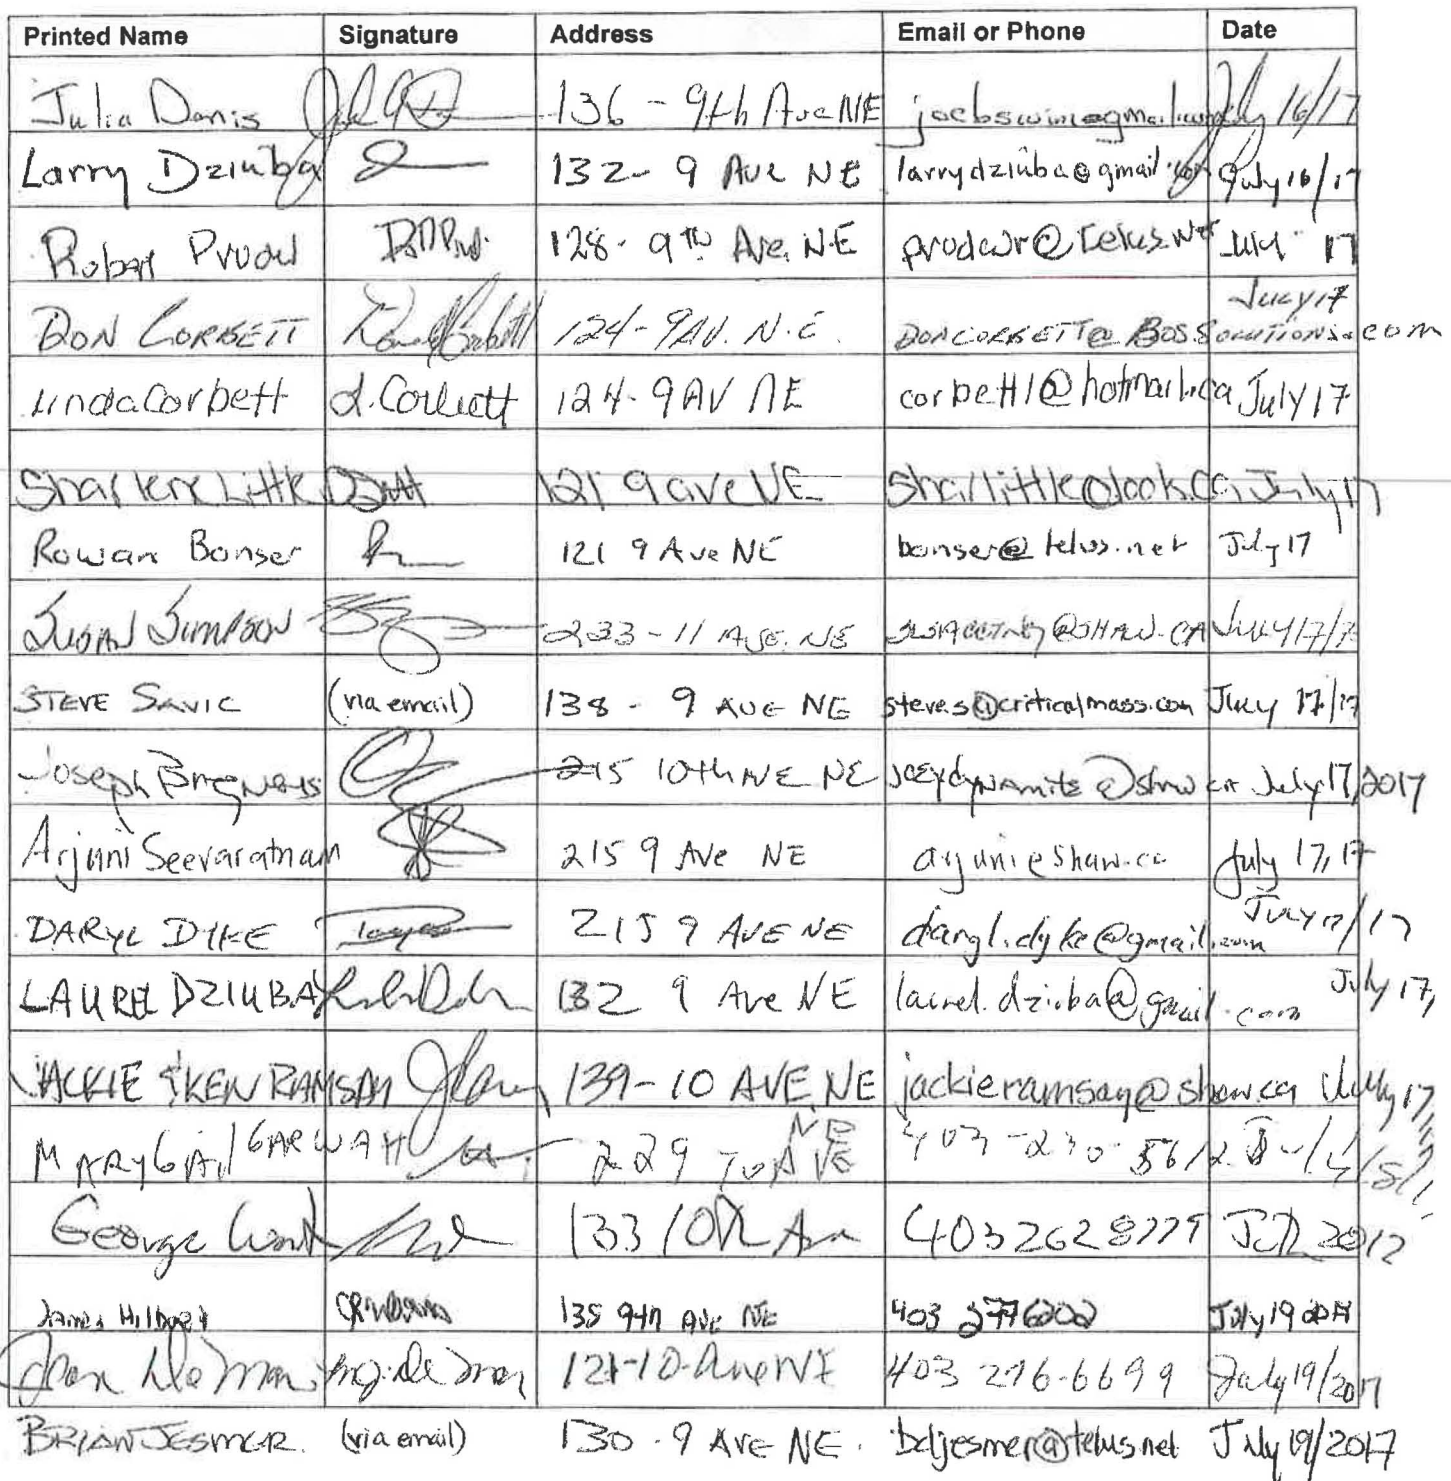 Printed Name Signature Address Email or Phone Date
Julia Danis 136 - 9th Ave NE July 16/17
Larry Dziuba 132 - 9 Ave NE larrydziuba@gmail.com July 16/17
Robert 128 - 9TH Ave, NE 17
DON CORBETT 124 - 9 AV. N.E. July 17
DONCORBETT@BOSSOLUTIONS.COM
Linda Corbett L. Corbett 124 - 9 AV NE corbettl@hotmail.ca July 17
Sharlene Little 121 9 ave NE sharlittle@look.ca July 17
Rowan Bonser 121 9 Ave NE bonser@telus.net July 17
SUSAN SIMPSON 233 - 11 AVE. NE @SHAW.CA JULY 17/17
STEVE SAVIC (via email) 138 - 9 AVE NE steves@criticalmass.com July 17/17
Joseph 215 10th AVE NE joeydynamite@shaw.ca July 17, 2017
Arjuni Seevaratnam 215 9 Ave NE arjuni@shaw.ca July 17, 17
DARYL DYKE 215 9 AVE NE daryl.dyke@gmail.com July 17/17
LAUREL DZIUBA 132 9 Ave NE laurel.dziuba@gmail.com July 17,
JACKIE & KEN RAMSAY 139 - 10 AVE NE jackieramsay@shaw.ca July 17,
MARYGAIL 229 AVE NE 403-230-5612
George 133 10th Ave 403262
James 9th Ave NE 403 2776202 July 19 2017
121-10 Ave NE 403 276-6699 July 19/2017
BRIAN JESMER. (via email) 130 - 9 AVE NE. bdjesmer@telus.net July 19/2017